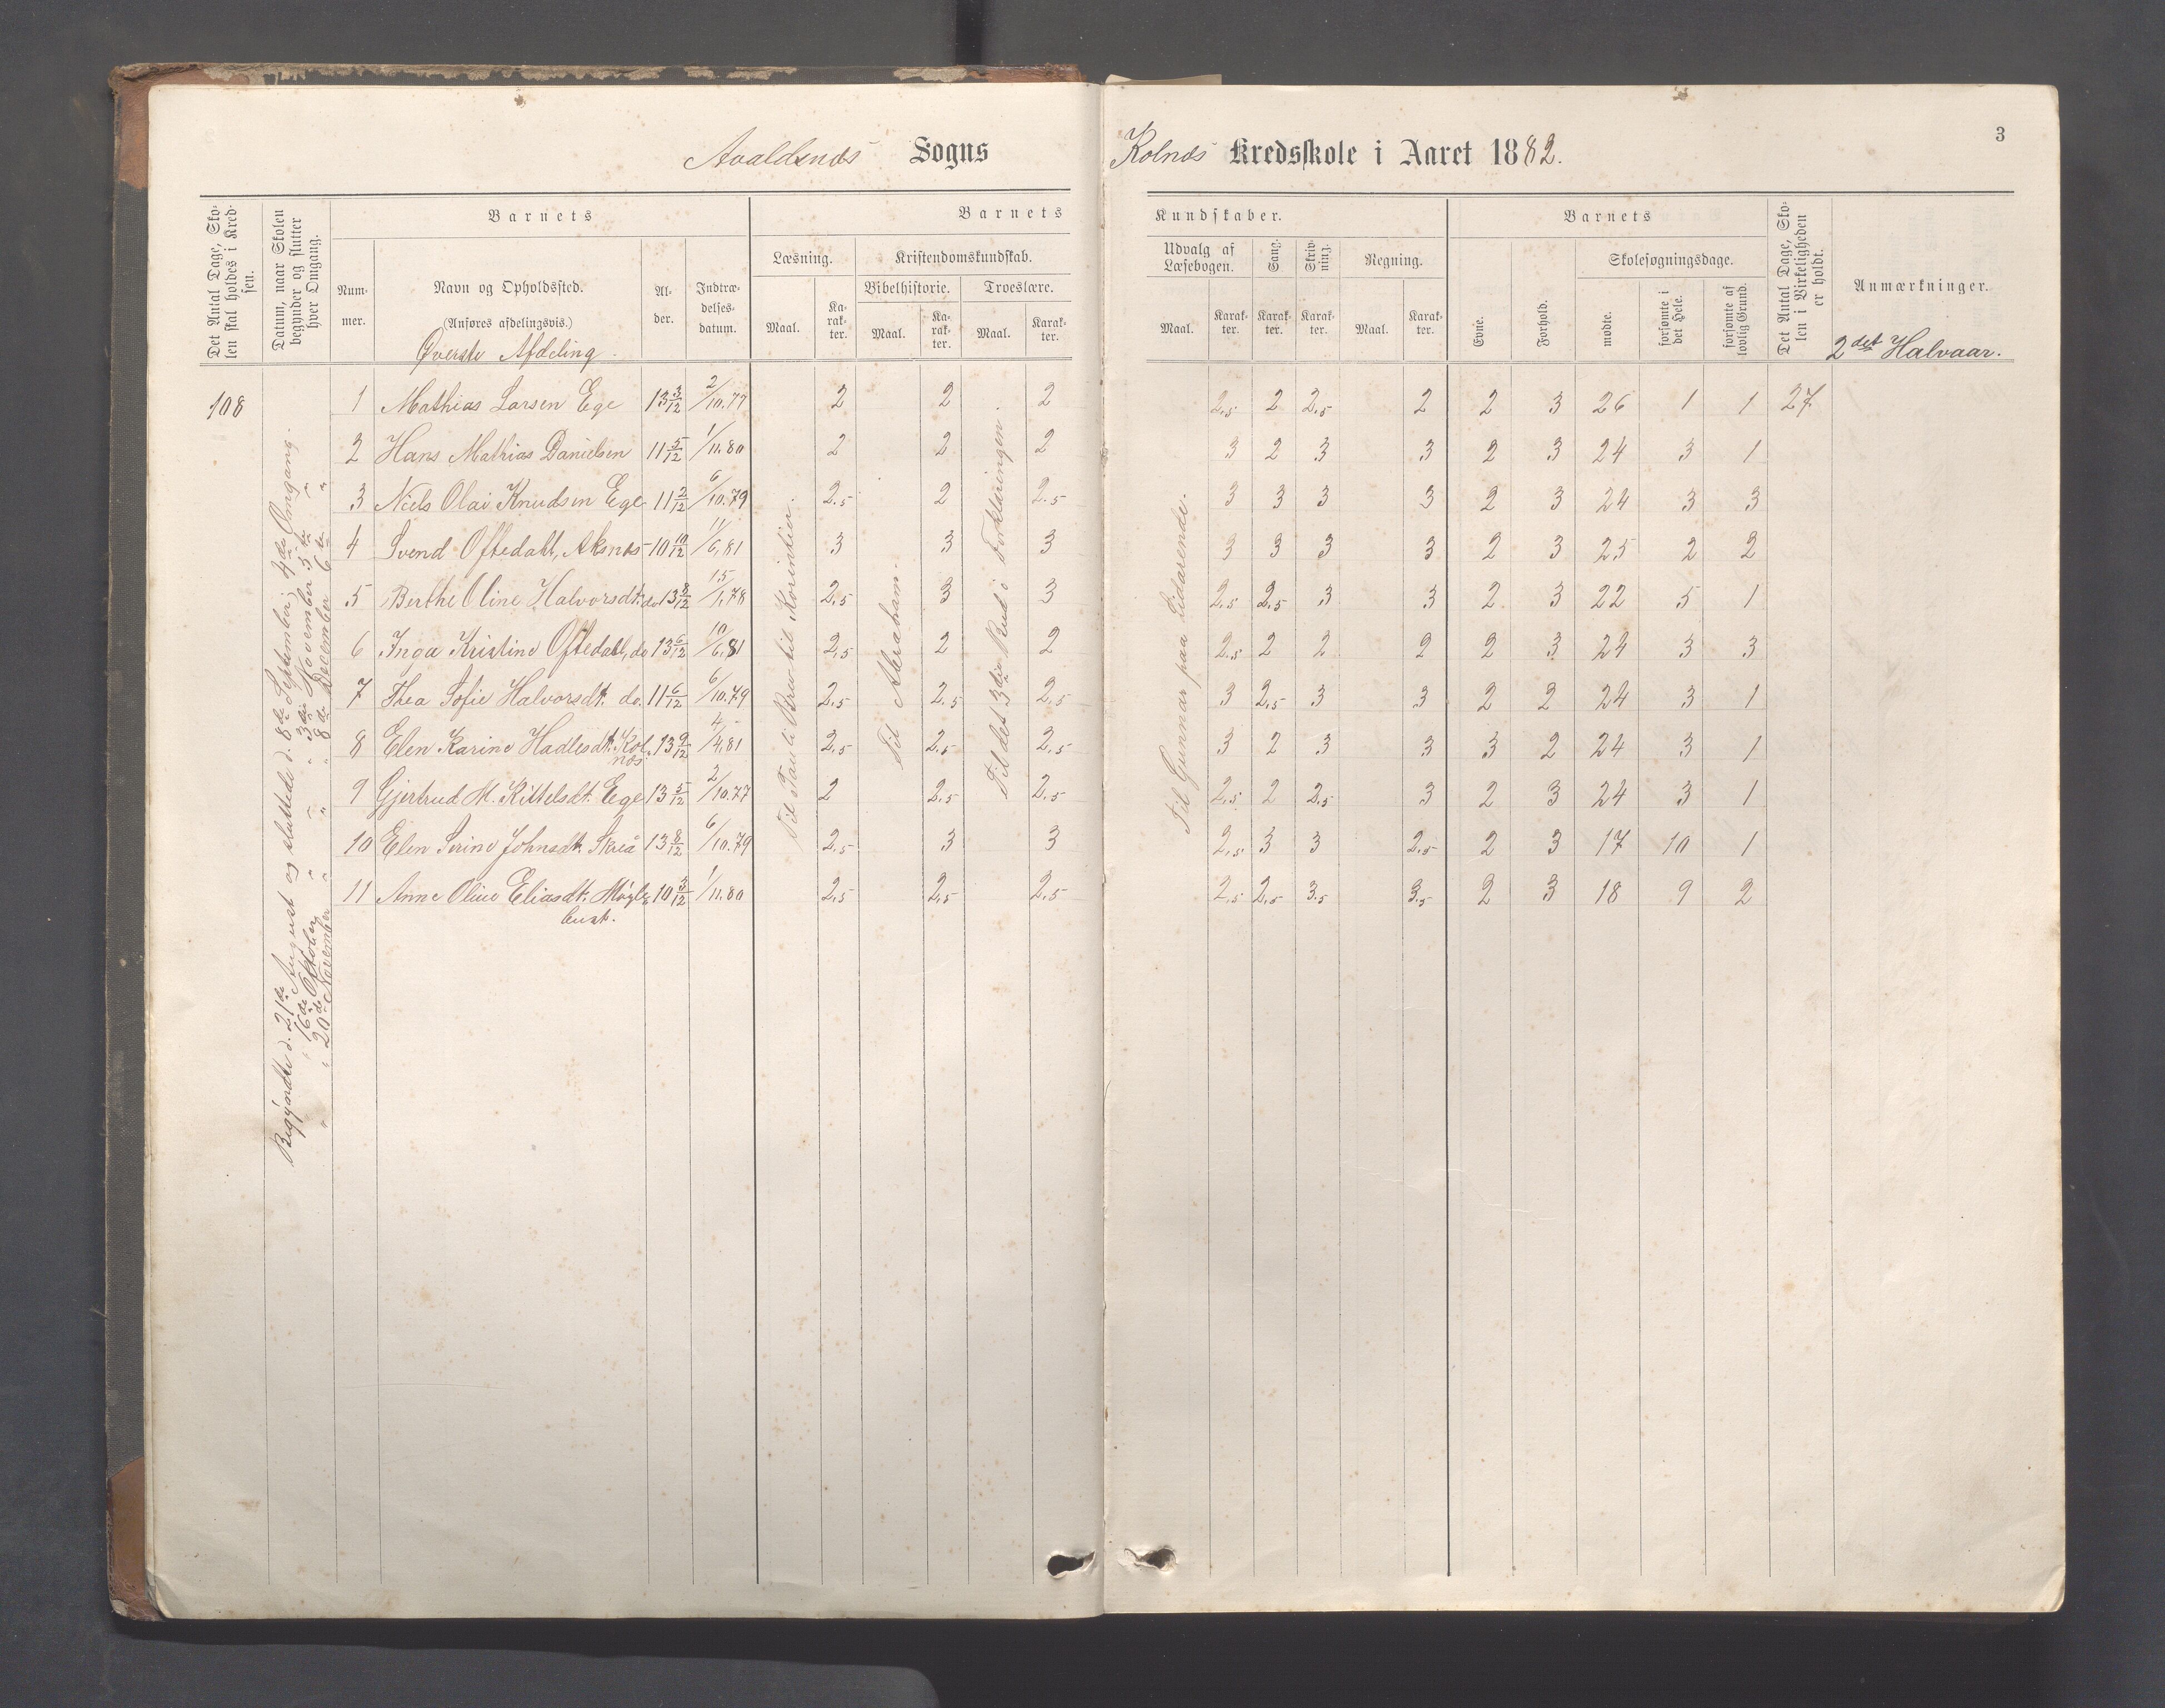 Avaldsnæs Sogns Kolnæs Kredsskole i Aaret 1882.
3
Det Antal Dage, Skolen skal holdes i Kredsen.
Datum, naar Skolen begynder og slutter hver Omgang.
Barnets
Nummer.
Navn og Opholdssted.
(Anføres afdelingsvis.)
Alder.
Indtrædelses-datum.
Barnets Kundskaber.
Læsning.
Maal.
Karakter.
Kristendomskundskab.
Bibelhistorie.
Maal.
Karakter.
Troeslære.
Maal.
Karakter.
Udvalg af Læsebogen.
Maal.
Karakter.
Sang.
Karakter.
Skrivning.
Karakter.
Regning.
Maal.
Karakter.
Barnets
Evne.
Forhold.
Skolesøgningsdage.
mødte.
forsømte i det Hele.
forsømte af lovlig Grund.
Det Antal Dage, Skolen i Virkeligheden er holdt.
Anmærkninger.
Øverste Afdeling.
2det Halvaar.
108
Begyndte d. 21de August og sluttede d. 8de September, 4de Omgang.
" 16de Oktober " " " 3die November 5te "
" 20de November " " " 8de December 6te "
Til Pauli Brev til Korintier.
Til Abraham.
Til det 3die Bud i Forklaringen.
Til Gunnar paa Lidarende.
1 Mathias Larsen Ege 13 3/12 2/10.77 2 2 2 2,5 2 2,5 2 2 3 26 1 1 27
2 Hans Mathias Danielsen 11 5/12 1/11.80 2 2 2 3 2 3 3 2 3 24 3 1
3 Niels Olai Knudsen Ege 11 2/12 6/10.79 2.5 2 2.5 3 3 3 3 2 3 24 3 3
4 Svend Oftedahl, Aksnæs 10 10/12 11/6.81 3 3 3 3 3 3 3 2 3 25 2 2
5 Berthe Oline Halvorsdt. do 13 8/12 15/1.78 2,5 3 3 2,5 2,5 3 3 2 3 22 5 1
6 Inga Kristine Oftedahl, do 13 6/12 10/6.81 2,5 2 2 2.5 2 2 2 2 3 24 3 3
7 Thea Sofie Halvorsdt. do. 11 6/12 6/10.79 2,5 2,5 2,5 3 2,5 3 3 2 2 24 3 1
8 Elen Karine Hadlesdt. Kolnæs 13 9/12 4/4.81 2,5 2,5 2,5 3 2 3 3 3 2 24 3 1
9 Gjertrud M. Kittelsdt. Ege 13 5/12 2/10.77 2 2,5 2,5 2,5 2 2,5 3 2 3 24 3 1
10 Elen Serine Johnsdt. Skreå 13 8/12 6/10.79 2,5 3 3 2,5 3 3 2,5 2 3 17 10 1
11 Anne Oline Eliasdt. Høylebust. 10 3/12 1/11.80 2,5 2,5 2,5 2,5 2,5 3,5 3,5 2 3 18 9 2